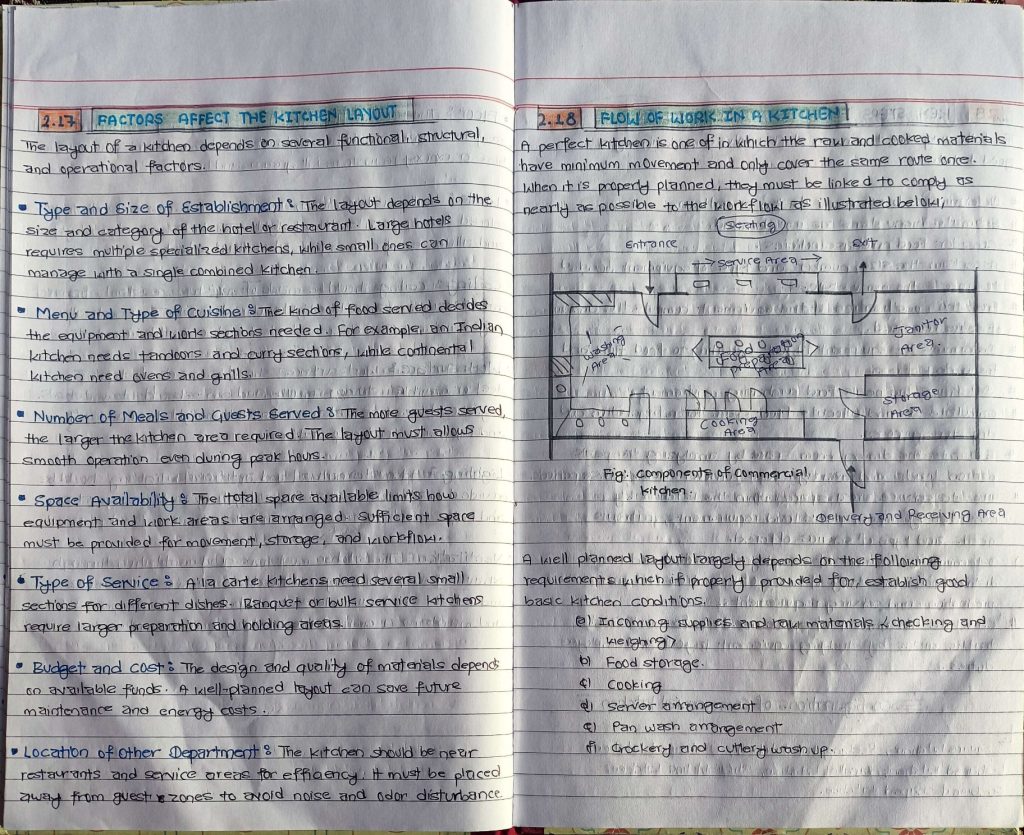 2.17 FACTORS AFFECT THE KITCHEN LAYOUT
The layout of a kitchen depends on several functional, structural,
and operational factors.
• Type and Size of Establishment : The layout depends on the
size and category of the hotel or restaurant. Large hotels
requires multiple specialized kitchens, while small ones can
manage with a single combined kitchen.
• Menu and Type of Cuisine : The kind of food served decides
the equipment and work sections needed. For example, an Indian
kitchen needs tandoors and curry sections, while continental
kitchen need ovens and grills.
• Number of Meals and Guests Served : The more guests served,
the larger the kitchen area required. The layout must allows
smooth operation even during peak hours.
• Space Availability : The total space available limits how
equipment and work areas are arranged. Sufficient space
must be provided for movement, storage, and workflow.
• Type of Service : A'la carte kitchens need several small
sections for different dishes. Banquet or bulk service kitchens
require larger preparation and holding areas.
• Budget and cost : The design and quality of materials depends
on available funds. A well-planned layout can save future
maintenance and energy costs.
• Location of Other Department : The kitchen should be near
restaurants and service areas for effiaency. It must be placed
away from guest zones to avoid noise and odor disturbance.
2.18 FLOW OF WORK IN A KITCHEN
A perfect kitchen is one of in which the raw and cooked materials
have minimum movement and only cover the same route once.
When it is properly planned, they must be linked to comply as
nearly as possible to the workflow as illustrated below;
Seating
Entrance
Service Area
Exit
Washing
Area
Food
preparation
Area
Janitor
Area.
Storage
Area
Cooking
Area
Fig: Components of commercial
kitchen.
Delivery and Receiving Area
A well planned layout largely depends on the following
requirements which if properly provided for, establish good
basic kitchen conditions.
a) Incoming supplies and raw materials < checking and
weighing>
b) Food storage.
c) Cooking
d) Server arrangement
e) Pan wash arrangement
f) Crockery and cutlery wash up.